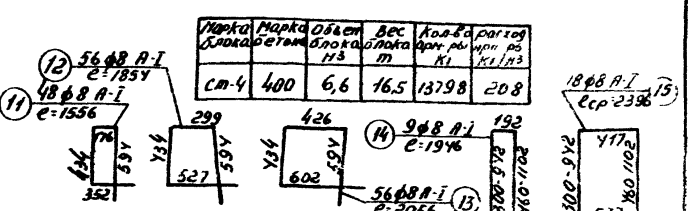 Марка блока Марка бетона Объем блока м3 Вес блока т Кол-во арм-ры кг расход арм-ры кг/м3
ст-4 400 6,6 16,5 1379,8 208
12 56ф8 А-I
ℓ=1854
11 48ф8 А-I
ℓ=1556
176 434 594 352
299 434 594 527
426 434 594 602
56ф8 А-I 13
ℓ=2056
14 9ф8 А-I
ℓ=1946
192
500-942 460-1102
18ф8 А-I 15
ℓср=2396
417
500-942 460 1102